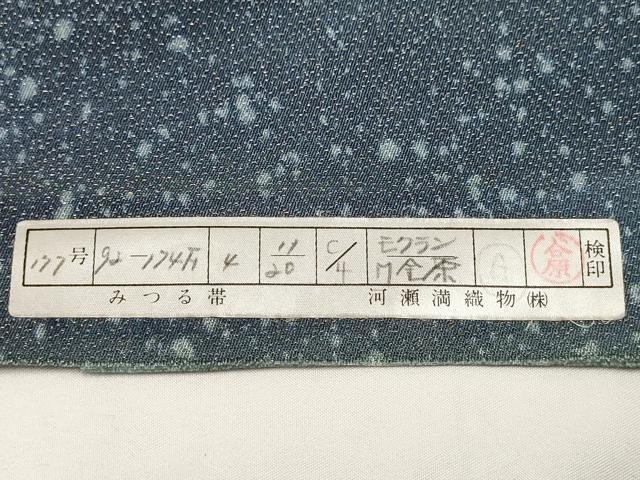 177 号 92-174万 4 11/20 C/4 モクラン 検印
M 金原 A 金原
みつる帯 河瀬満織物(株)